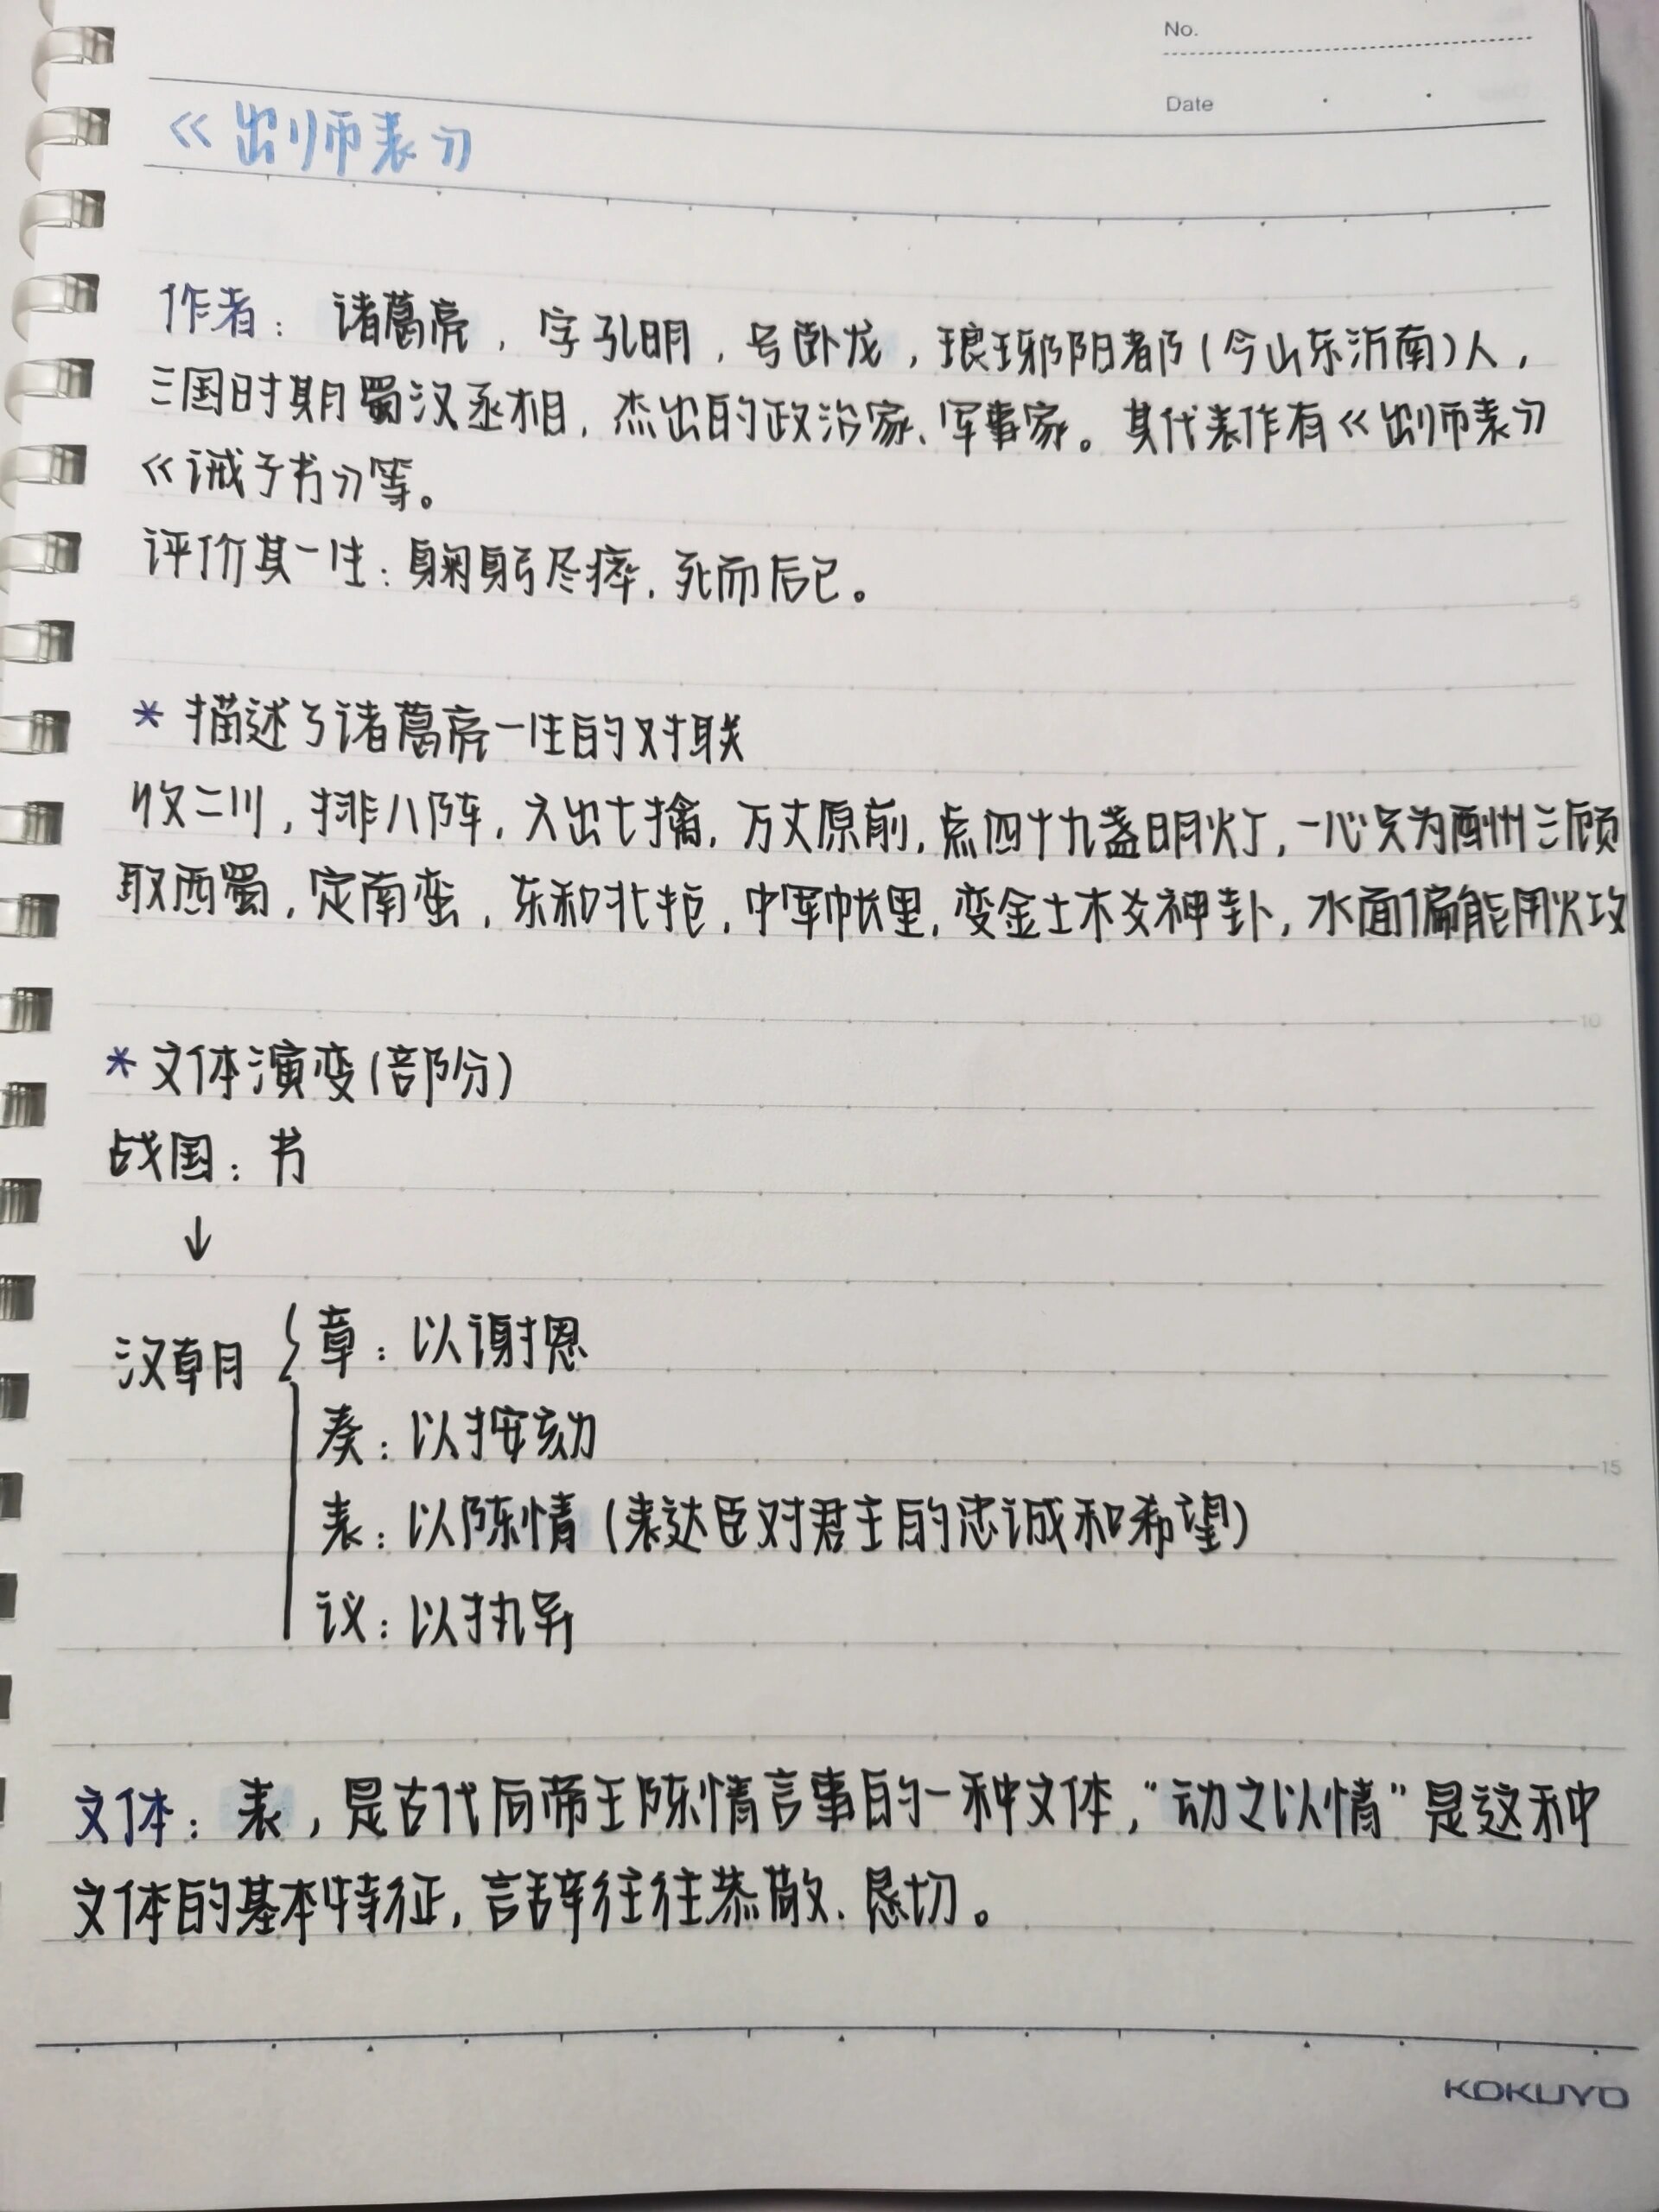 No.
Date
《出师表》
作者：诸葛亮，字孔明，号卧龙，琅琊阳都（今山东沂南）人，
三国时期蜀汉丞相，杰出的政治家、军事家。其代表作有《出师表》
《诫子书》等。
评价其一生：鞠躬尽瘁，死而后已。
5
* 描述了诸葛亮一生的对联
收二川，排八阵，六出七擒，万丈原前，点四十九盏明灯，一心只为酬州三顾
取西蜀，定南蛮，东和北拒，中军帐里，变金土木爻神卦，水面偏能用火攻
10
* 文体演变（部分）
战国：书
↓
汉朝 { 章：以谢恩
奏：以按劾
15
表：以陈情（表达臣对君主的忠诚和希望）
议：以执异
文体：表，是古代向帝王陈情言事的一种文体，“动之以情”是这种
文体的基本特征，言辞往往恭敬、恳切。
KOKUYO